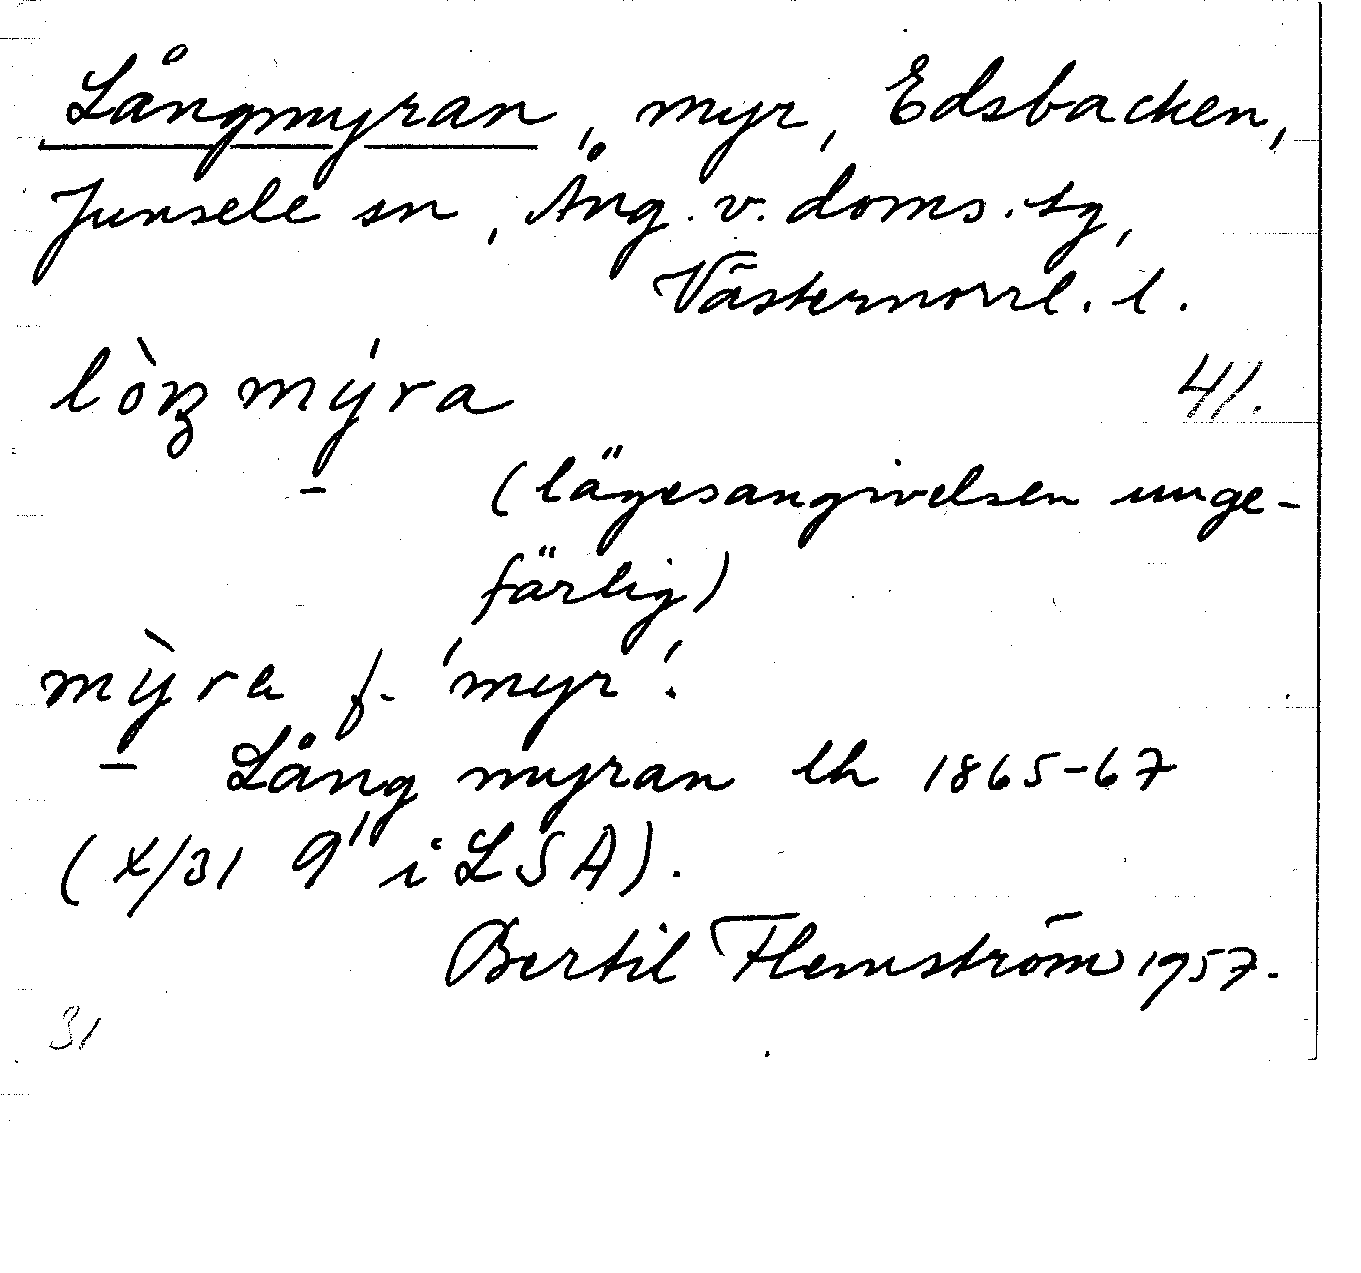 Långmyran, myr, Edsbacken,
Junsele sn, Ång. v. doms. sg,
Västernorrl. l.
lòŋmýra 41.
(lägesangivelsen unge-
färlig)
mỳra f. 'myr'.
Lång myran lh 1865-67
(X/31 9" i LSA).
Bertil Flemström 1957.
31